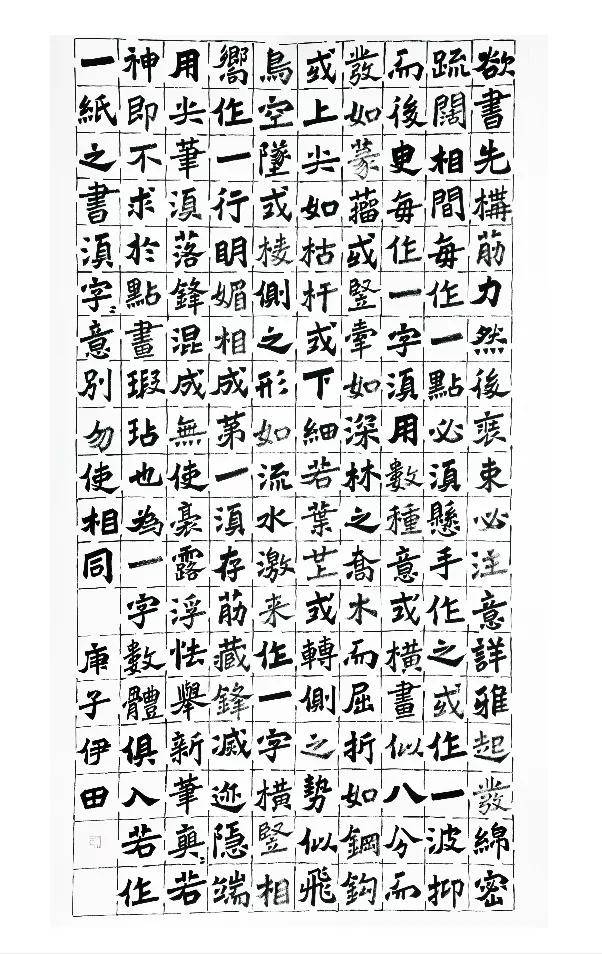 欲書先構筋力然後裹束必注意詳雅起發綿密
疏闊相間每作一點必須懸手作之或作一波抑
而後曳每作一字須用數種意或橫畫似八分而
發如篆籀或竪牽如深林之喬木而屈折如鋼鈎
或上尖如枯杆或下細若葉芒或轉側之勢似飛
鳥空墜或棱側之形如流水激来作一字橫竪相
嚮作一行明媚相成第一須存筋藏鋒滅迹隱端
用尖筆須落鋒混成無使豪露浮怯舉新筆爽〻若
神即不求於點畫瑕玷也為一字數體俱入若作
一紙之書須字〻意別勿使相同 庚子伊田